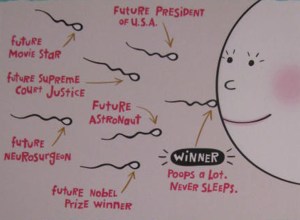 future
Movie Star
Future President
of U.S.A.
future Supreme
Court Justice
Future
Astronaut
future
Neurosurgeon
WINNER
Poops a lot.
Never sleeps.
future Nobel
Prize Winner